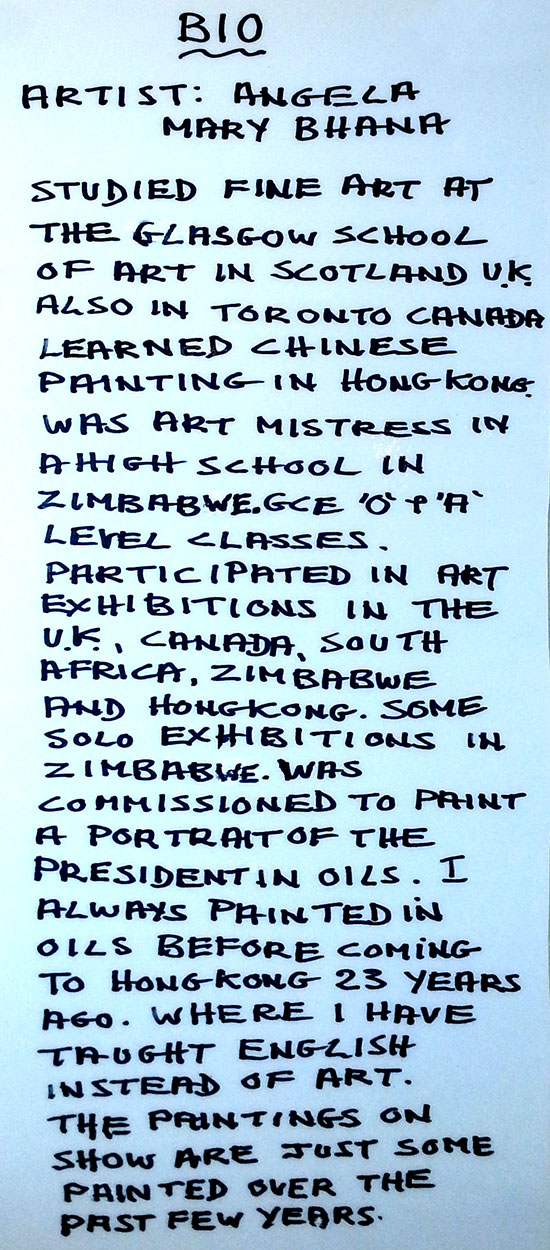 BIO
ARTIST: ANGELA
MARY BHANA
STUDIED FINE ART AT
THE GLASGOW SCHOOL
OF ART IN SCOTLAND U.K.
ALSO IN TORONTO CANADA
LEARNED CHINESE
PAINTING IN HONG KONG.
WAS ART MISTRESS IN
A HIGH SCHOOL IN
ZIMBABWE. GCE 'O' & 'A'
LEVEL CLASSES.
PARTICIPATED IN ART
EXHIBITIONS IN THE
U.K., CANADA, SOUTH
AFRICA, ZIMBABWE
AND HONG KONG. SOME
SOLO EXHIBITIONS IN
ZIMBABWE. WAS
COMMISSIONED TO PAINT
A PORTRAIT OF THE
PRESIDENT IN OILS. I
ALWAYS PAINTED IN
OILS BEFORE COMING
TO HONG KONG 23 YEARS
AGO. WHERE I HAVE
TAUGHT ENGLISH
INSTEAD OF ART.
THE PAINTINGS ON
SHOW ARE JUST SOME
PAINTED OVER THE
PAST FEW YEARS.